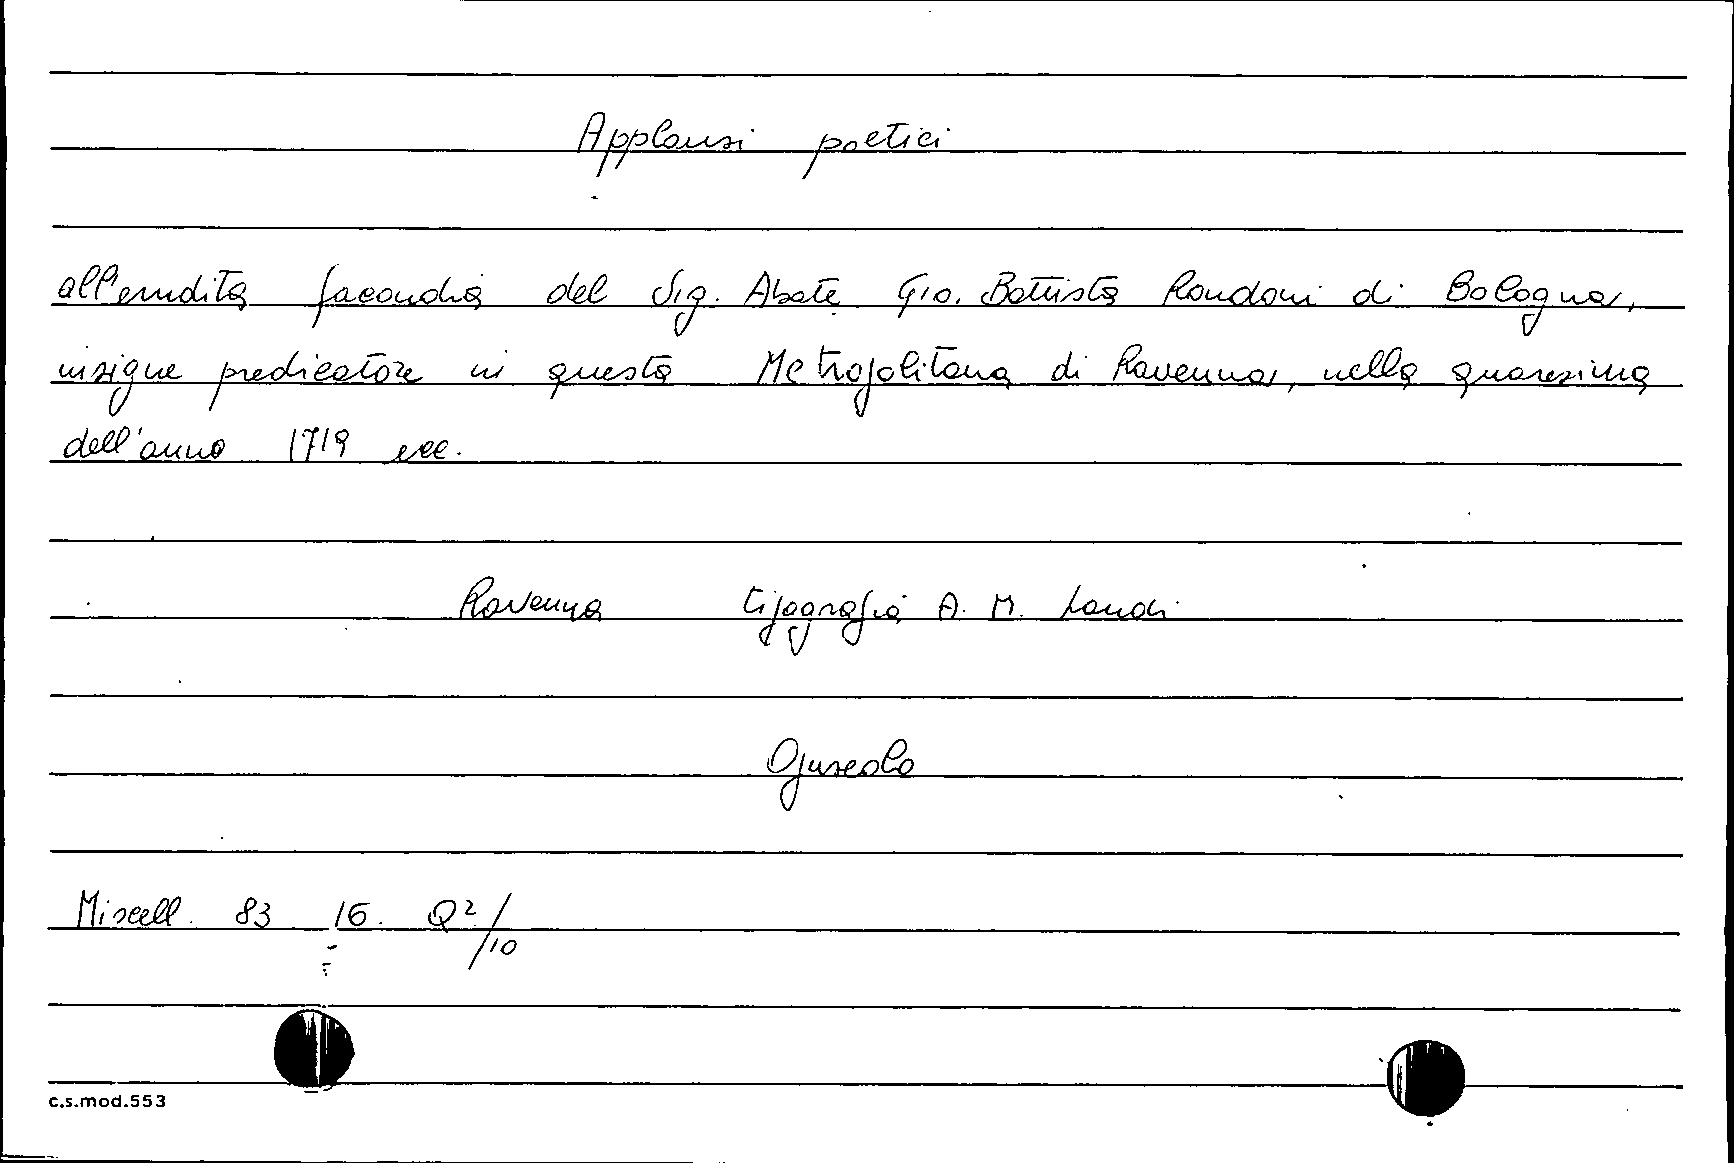 Applausi poetici
all'erudita facondia del Sig. Abate Gio. Battista Rondoni di Bologna,
insigne predicatore in questa Metropolitana di Ravenna, nella quaresima
dell'anno 1719 ecc.
Ravenna tipografia A. M. Landi
Opuscolo
Miscell. 83 16. Q2/10
c.s.mod.553